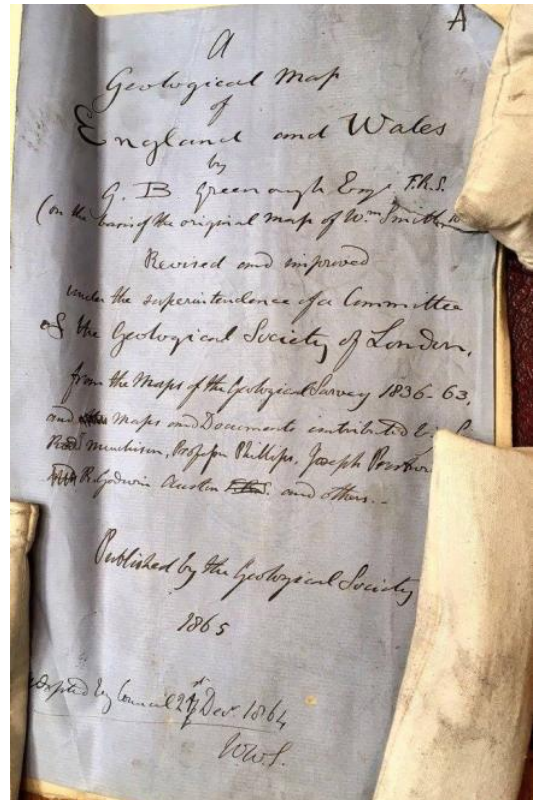 A
A
Geological Map
of
England and Wales
by
G. B Greenough Esqr F.R.S.
(on the basis of the original map of Wm Smith
Revised and improved
under the superintendence of a Committee
of the Geological Society of London,
from the Maps of the Geological Survey 1836-63,
and Maps and Documents contributed by
Murchison, Professor Phillips, Joseph
R. Godwin Austen F.R.S. and others.-
Published by the Geological Society
1865
adopted by Council Decr 1864
W.W.S.